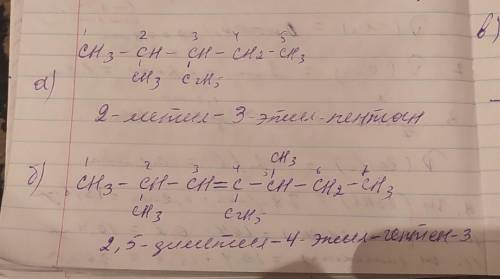 1 2 3 4 5
CH3 – CH – CH – CH2 – CH3
CH3 C2H5
а)
2-метил-3-этил-пентан
в)
CH3
1 2 3 4 5 6 7
б) CH3 – CH – CH = C – CH – CH2 – CH3
CH3 C2H5
2,5-диметил-4-этил-гептен-3